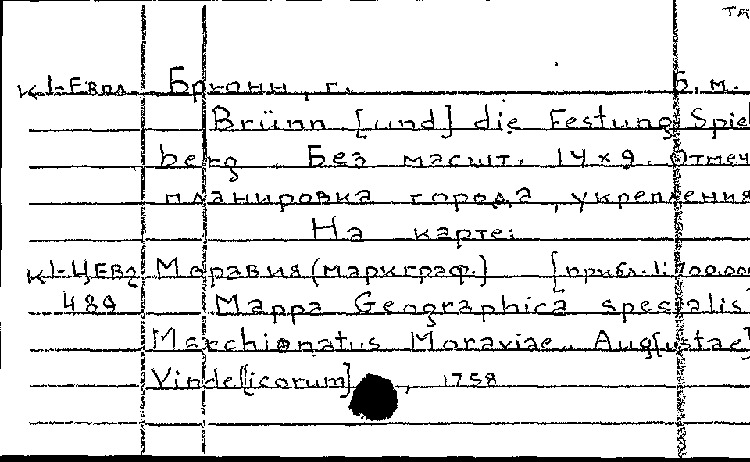 К1-Евр. Брюнн, г. Б.м.
Brünn [und] die Festung Spiel
berg. Без масшт. 14×9. Отмеч
планировка города, укрепления
На карте:
К1-ЦЕвр Моравия (маркграф.) [прибл. 1:700.000
489 Mappa Geographica specialis
Marchionatus Moraviae. Aug[ustae]
Vindel[icorum] , 1758